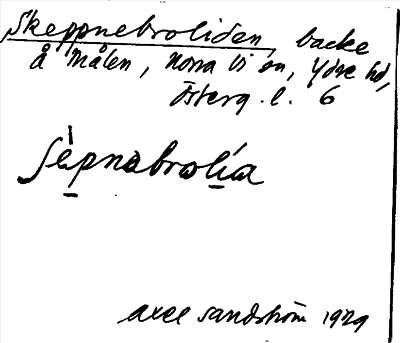 Skeppnebroliden, backe
å Målen, Norra Vi sn, Ydre hd,
Österg. l. 6
Axel Sandström 1929